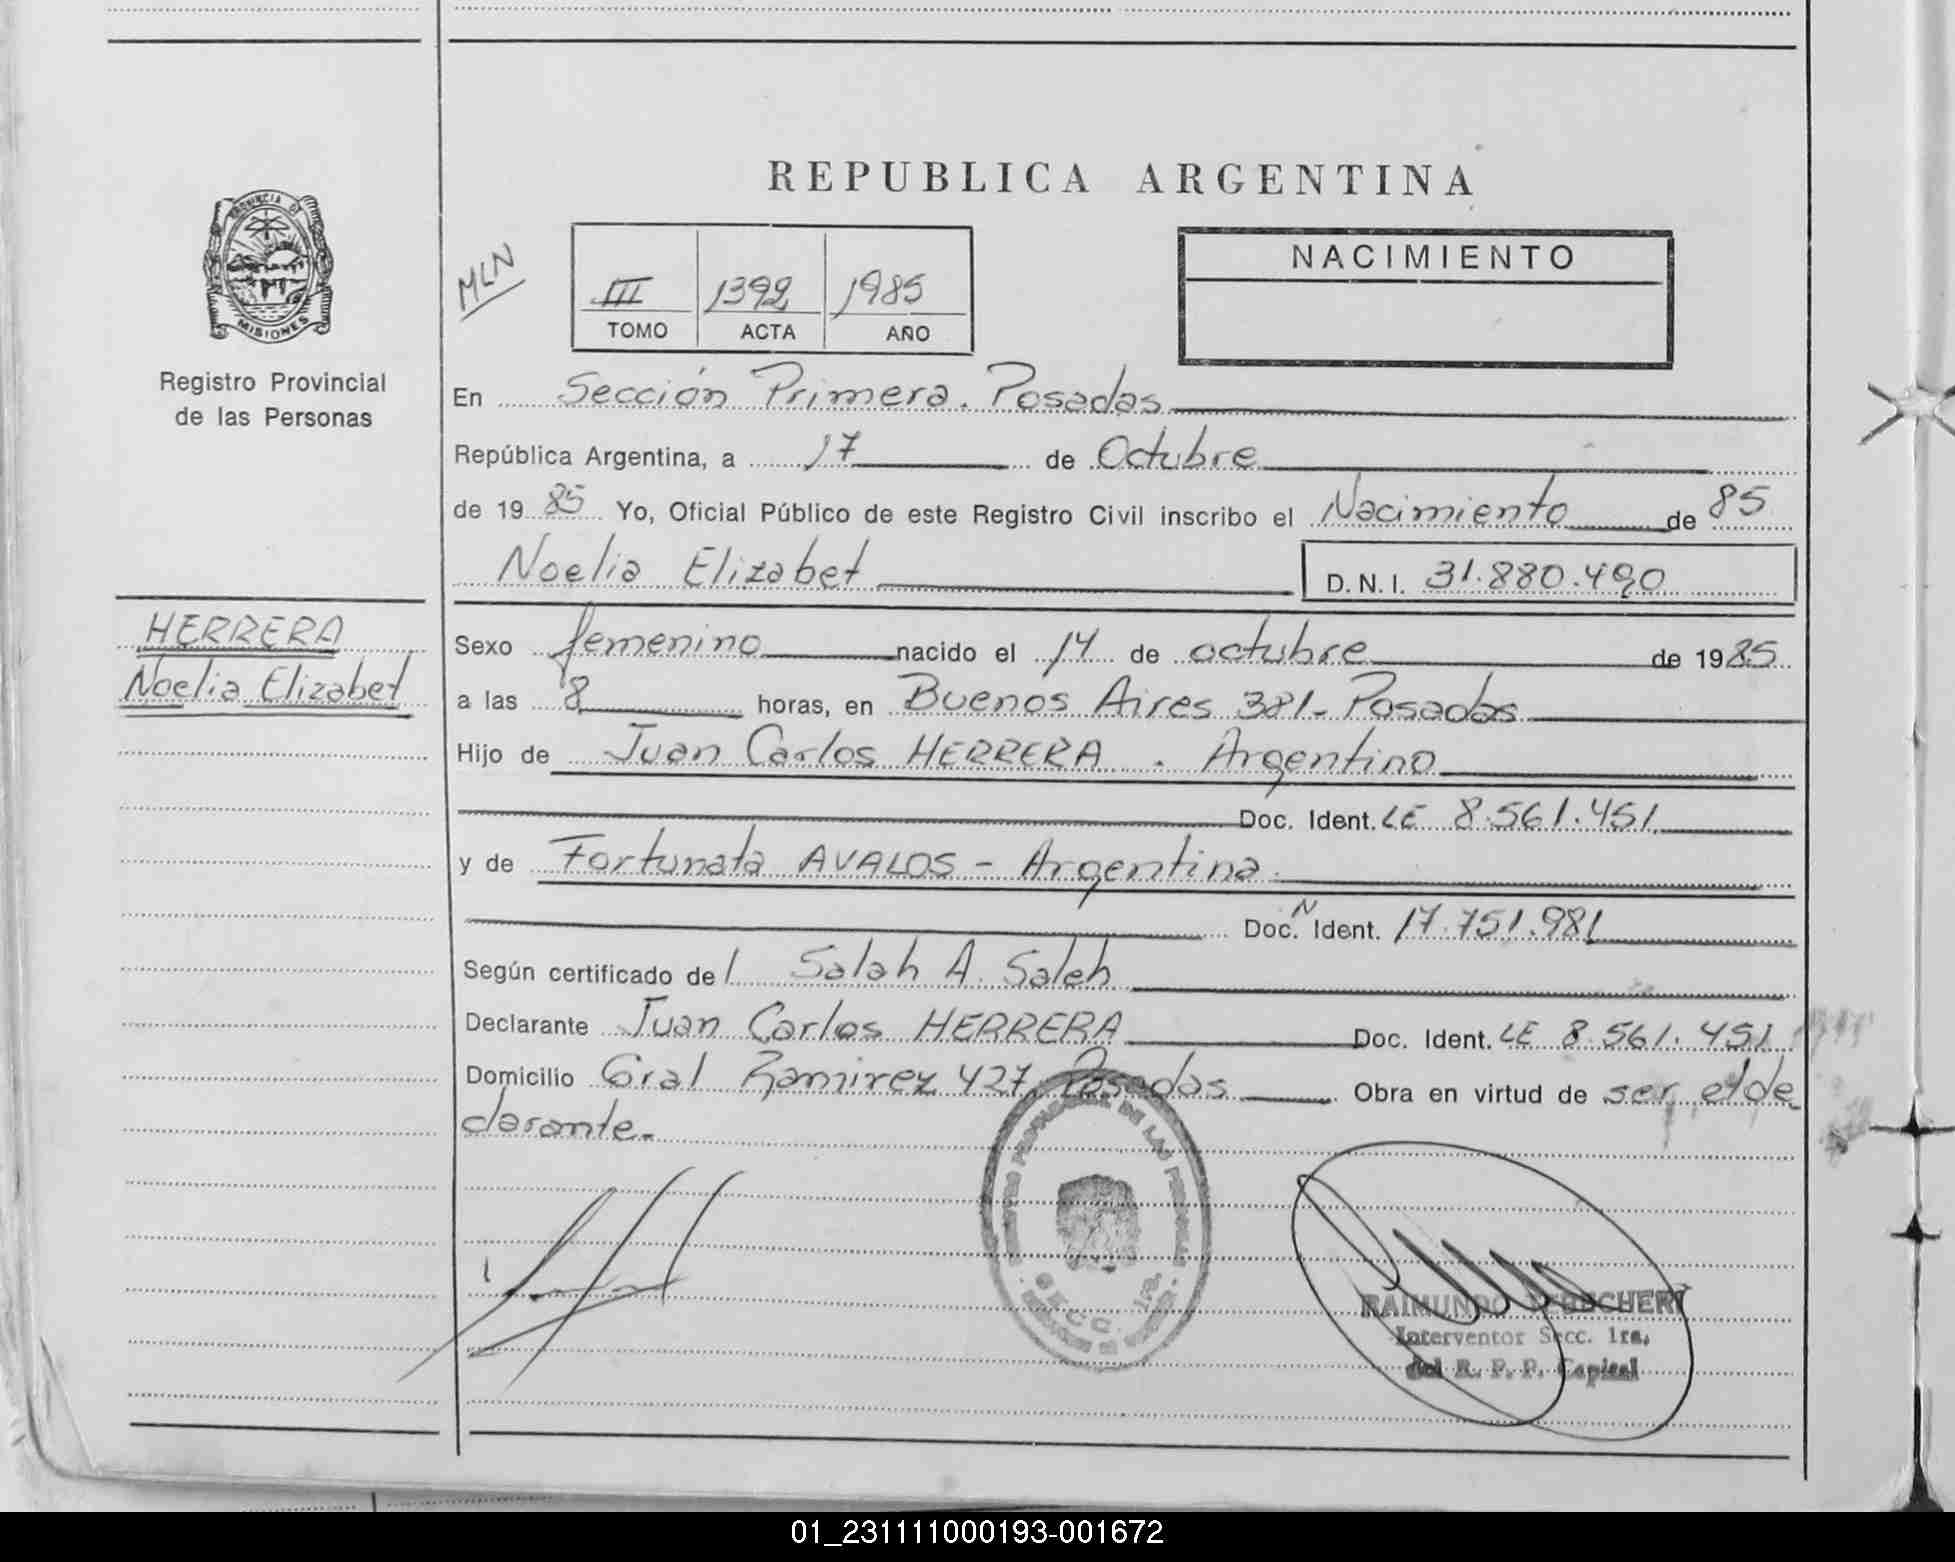 REPUBLICA ARGENTINA
PROVINCIA DE
MISIONES
Registro Provincial
de las Personas
MLN
III 1392 1985
TOMO ACTA AÑO
NACIMIENTO
En Sección Primera. Posadas
República Argentina, a 17 de Octubre
de 1985 Yo, Oficial Público de este Registro Civil inscribo el Nacimiento de 85
Noelia Elizabet D.N.I. 31.880.490
HERRERA
Noelia Elizabet
Sexo femenino nacido el 14 de octubre de 1985
a las 8 horas, en Buenos Aires 381- Posadas
Hijo de Juan Carlos HERRERA. Argentino
Doc. Ident. LE 8.561.451
y de Fortunata AVALOS - Argentina.
Doc. N Ident. 17.751.981
Según certificado de l Salah A. Saleh
Declarante Juan Carlos HERRERA Doc. Ident. LE 8.561.451
Domicilio Gral Ramirez 427. Posadas Obra en virtud de ser el de
clarante.-
DE LAS
SECC. 1ra.
RAIMUNDO
Interventor Secc. 1ra.
del R. P. P. Capital
01_231111000193-001672